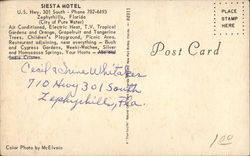 SIESTA MOTEL
U.S. Hwy. 301 South - Phone 782-4493
Zephyrhills, Florida
(City of Pure Water)
Air Conditioned, Electric Heat, T.V, Tropical
Gardens and Orange, Grapefruit and Tangerine
Trees. Children's Playground, Picnic Area.
Restaurant adjoining, near everything - Busch
and Cypress Gardens, Weeki-Wachee, Silver
and Homosassa Springs. Your Hosts -
PLACE
STAMP
HERE
Post Card
Cecil & Irene Whitaker
710 Hwy 301 South
Zephyrhills, Fla.
Color Photo by McElvain
1.00